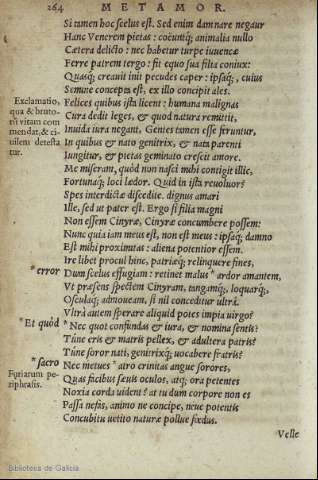 264 METAMOR.
Si tamen hoc scelus est. Sed enim damnare negaur
Hanc Venerem pietas: coëuntq; animalia nullo
Cætera delicto: nec habetur turpe iuuencæ
Ferre patrem tergo: fit equo sua filia coniux:
Quasq; creauit init pecudes caper: ipsaq;, cuius
Semine concepta est, ex illo concipit ales.
Exclamatio,
qua & bruto-
rũ vitam com
mendat, & ci-
uilem detesta
tur.
Felices quibus ista licent: humana malignas
Cura dedit leges, & quod natura remittit,
Inuida iura negant. Gentes tamen esse feruntur,
In quibus & nato genitrix, & nata parenti
Iungitur, & pietas geminato crescit amore.
Me miseram, quòd non nasci mihi contigit illic,
Fortunaq; loci lædor. Quid in ista reuoluor?
Spes interdictæ discedite. dignus amari
Ille, sed ut pater est. Ergo si filia magni
Non essem Cinyræ, Cinyræ concumbere possem:
Nunc quia iam meus est, non est meus: ipsaq; damno
Est mihi proximitas: aliena potentior essem.
Ire libet procul hinc, patriæq; relinquere fines,
* error
Dum scelus effugiam: retinet malus * ardor amantem,
Vt præsens spectem Cinyram, tangamq;, loquarq;,
Osculaq; admoueam, si nil conceditur ultrà.
Vltrà autem sperare aliquid potes impia uirgo?
* Et quòd
* Nec quot confundas & iura, & nomina sentis?
Túne eris & matris pellex, & adultera patris?
Túne soror nati, genitrixq; uocabere fratris?
* sacro
Nec metues * atro crinitas angue sorores,
Furiarum pe-
riphrasis.
Quas facibus sæuis oculos, atq; ora petentes
Noxia corda uident? at tu dum corpore non es
Passa nefas, animo ne concipe, neue potentis
Concubitu uetito naturæ pollue fœdus.
Velle
Biblioteca de Galicia